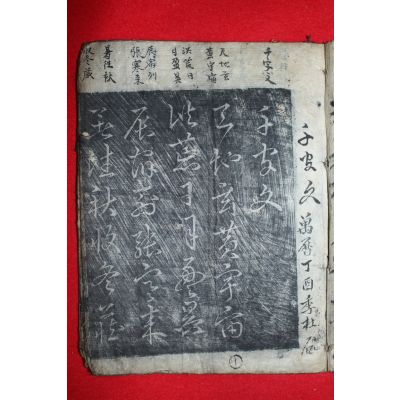 千字文 萬曆丁酉季
千字文
天地玄
黃宇宙
洪荒日
月盈昃
辰宿列
張寒來
暑往秋
收冬藏
千字文
天地玄黃宇宙
洪荒日月盈昃
辰宿列張寒來
暑往秋收冬藏